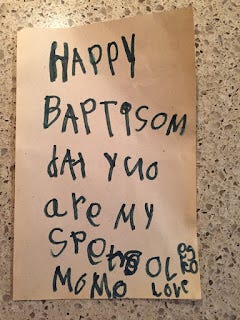 HAPPY
BAPTISOM
dat yuo
are MY
SPe
MOMO
LOVE